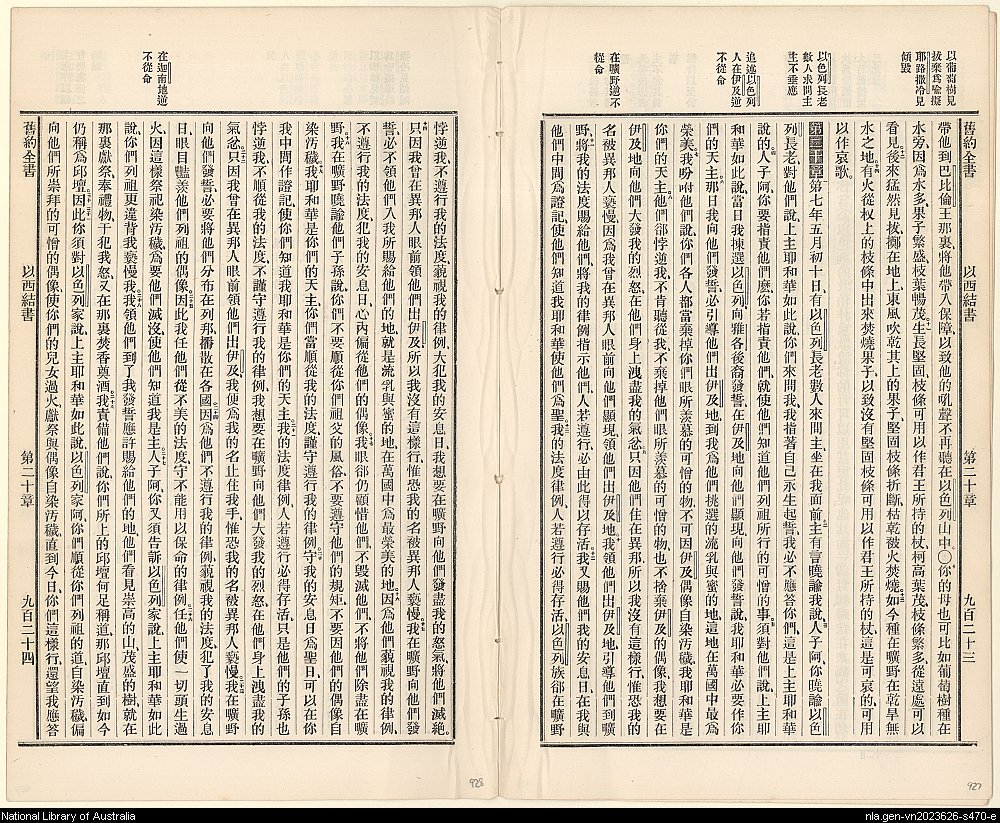 以葡萄樹見
拔棄爲喻擬
耶路撒冷見
傾毀
以色列長老
數人求問主
主不垂應
追述以色列
人在伊及逆
不從命
在曠野逆不
從命
舊約全書 以西結書 第二十章 九百二十三
帶他到巴比倫王那裏、將他帶入保障、以致他的吼聲不再聽在以色列山中○你的母也可比如葡萄樹、種在
水旁、因爲水多、果子繁盛、枝葉暢茂、生長堅固枝條、可用以作君王所持的杖、柯高葉茂、枝條繁多、從遠處可以
看見、後來猛然見拔、擲在地上、東風吹乾其上的果子、堅固枝條折斷枯乾、被火焚燒、如今種在曠野、在乾旱無
水之地、有火從杈上的枝條中出來、焚燒果子、以致沒有堅固枝條可用以作君王所持的杖、這是可哀的、可用
以作哀歌、
第二十章 第七年五月初十日、有以色列長老數人來問主、坐在我面前、主有言曉諭我說、人子阿、你曉諭以色
列長老、對他們說、主主耶和華如此說、你們來問我、我指著自己永生起誓、我必不應答你們、這是主主耶和華
說的、人子阿、你要指責他們麽、你若指責他們、就使他們知道他們列祖所行的可憎的事、須對他們說、主主耶
和華如此說、當日我揀選以色列、向雅各後裔發誓、在伊及地向他們顯現、向他們發誓說、我耶和華必要作你
們的天主、那日我向他們發誓、必引導他們出伊及地、到我爲他們挑選的流乳與蜜的地、這地在萬國中最爲
榮美、我吩咐他們說、你們各人都當棄掉你們眼所羨慕的可憎的物、不可因伊及偶像自染汚穢、我耶和華是
你們的天主、他們卻悖逆我、不肯聽從我、不棄掉他們眼所羨慕的可憎的物、也不捨棄伊及的偶像、我想要在
伊及地向他們大發我的烈怒、在他們身上洩盡我的氣忿、只因他們住在異邦人中、所以我沒有這樣行、惟恐我的
名被異邦人褻慢、因爲我曾在異邦人眼前、向他們顯現、領他們出伊及地、我領他們出伊及地、引導他們到曠
野、將我的法度賜給他們、將我的律例指示他們、人若遵行、必由此得以存活、我又賜他們我的安息日、在我與
他們中間爲證記、使他們知道我耶和華使他們爲聖、我的法度律例、人若遵行必得存活、以色列族卻在曠野
927
悖逆我、不遵行我的法度、藐視我的律例、大犯我的安息日、我想要在曠野向他們發盡我的怒氣、將他們滅絕、
只因我曾在異邦人眼前領他們出伊及、所以我沒有這樣行、惟恐我的名被異邦人褻慢、我在曠野向他們發
誓、必不領他們入我所賜給他們的地、就是流乳與蜜的地、在萬國中爲最榮美的地、因爲他們藐視我的律例、
不遵行我的法度、犯我的安息日、心內偏從他們的偶像、我眼卻仍顧惜他們、不毀滅他們、不將他們除盡在曠
野、我在曠野曉諭他們子孫說、你們不要順從你們祖父的風俗、不要遵守他們的規矩、不要因他們的偶像自
染汚穢、我耶和華是你們的天主、你們當順從我的法度、謹守遵行我的律例、守我的安息日爲聖日、可以在你
我中間作證記、使你們知道我耶和華是你們的天主、我的法度律例、人若遵行必得存活、只是他們的子孫也
悖逆我、不順從我的法度、不謹守遵行我的律例、我想要在曠野向他們大發我的烈怒、在他們身上洩盡我的
氣忿、只因我曾在異邦人眼前領他們出伊及、我便爲我的名止住我手、惟恐我的名被異邦人褻慢、我在曠野
向他們發誓、必要將他們分布在列邦、播散在各國、因爲他們不遵行我的律例、藐視我的法度、犯了我的安息
日、眼目豔羨他們列祖的偶像、因此我任他們從不美的法度、守不能用以保命的律例、任他們使一切頭生過
火、因這樣祭祀染汚穢、爲要他們滅沒、使他們知道我是主、人子阿、你又須告訴以色列家說、主主耶和華如此
說、你們列祖更違背我褻慢我、我領他們到了我發誓應許賜給他們的地、他們看見崇高的山、茂盛的樹、就在
那裏獻祭、奉禮物干犯我怒、又在那裏焚香奠酒、我責備他們說、你們所上的邱壇何足稱道、那邱壇直到如今
仍稱爲邱壇、因此你須對以色列家說、主主耶和華如此說、以色列家阿、你們順從你們列祖的道、自染汚穢、偏
向他們所崇拜的可憎的偶像、使你們的兒女過火獻祭與偶像、自染汚穢、直到今日、你們這樣行、還望我應答
舊約全書 以西結書 第二十章 九百二十四
在迦南地逆
不從命
928
National Library of Australia
nla.gen-vn2023626-s470-e